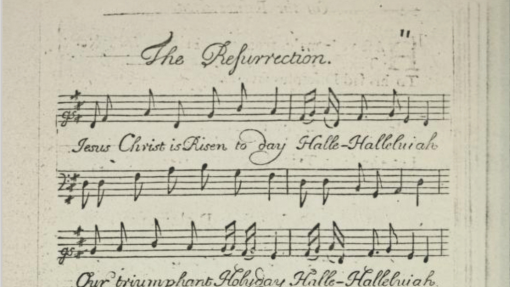 The Resurrection.
Jesus Christ is Risen to day Halle-Halleluiah
Our triumphant Holyday Halle-Halleluiah.